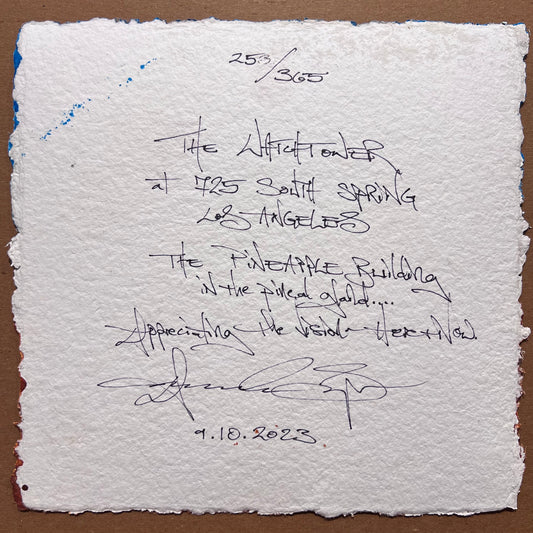 253/365
THE WATCHTOWER
at 725 SOUTH SPRING
LOS ANGELES
THE PINEAPPLE Building
in the pineal gland....
Appreciating the vision HERE + NOW
9.10.2023